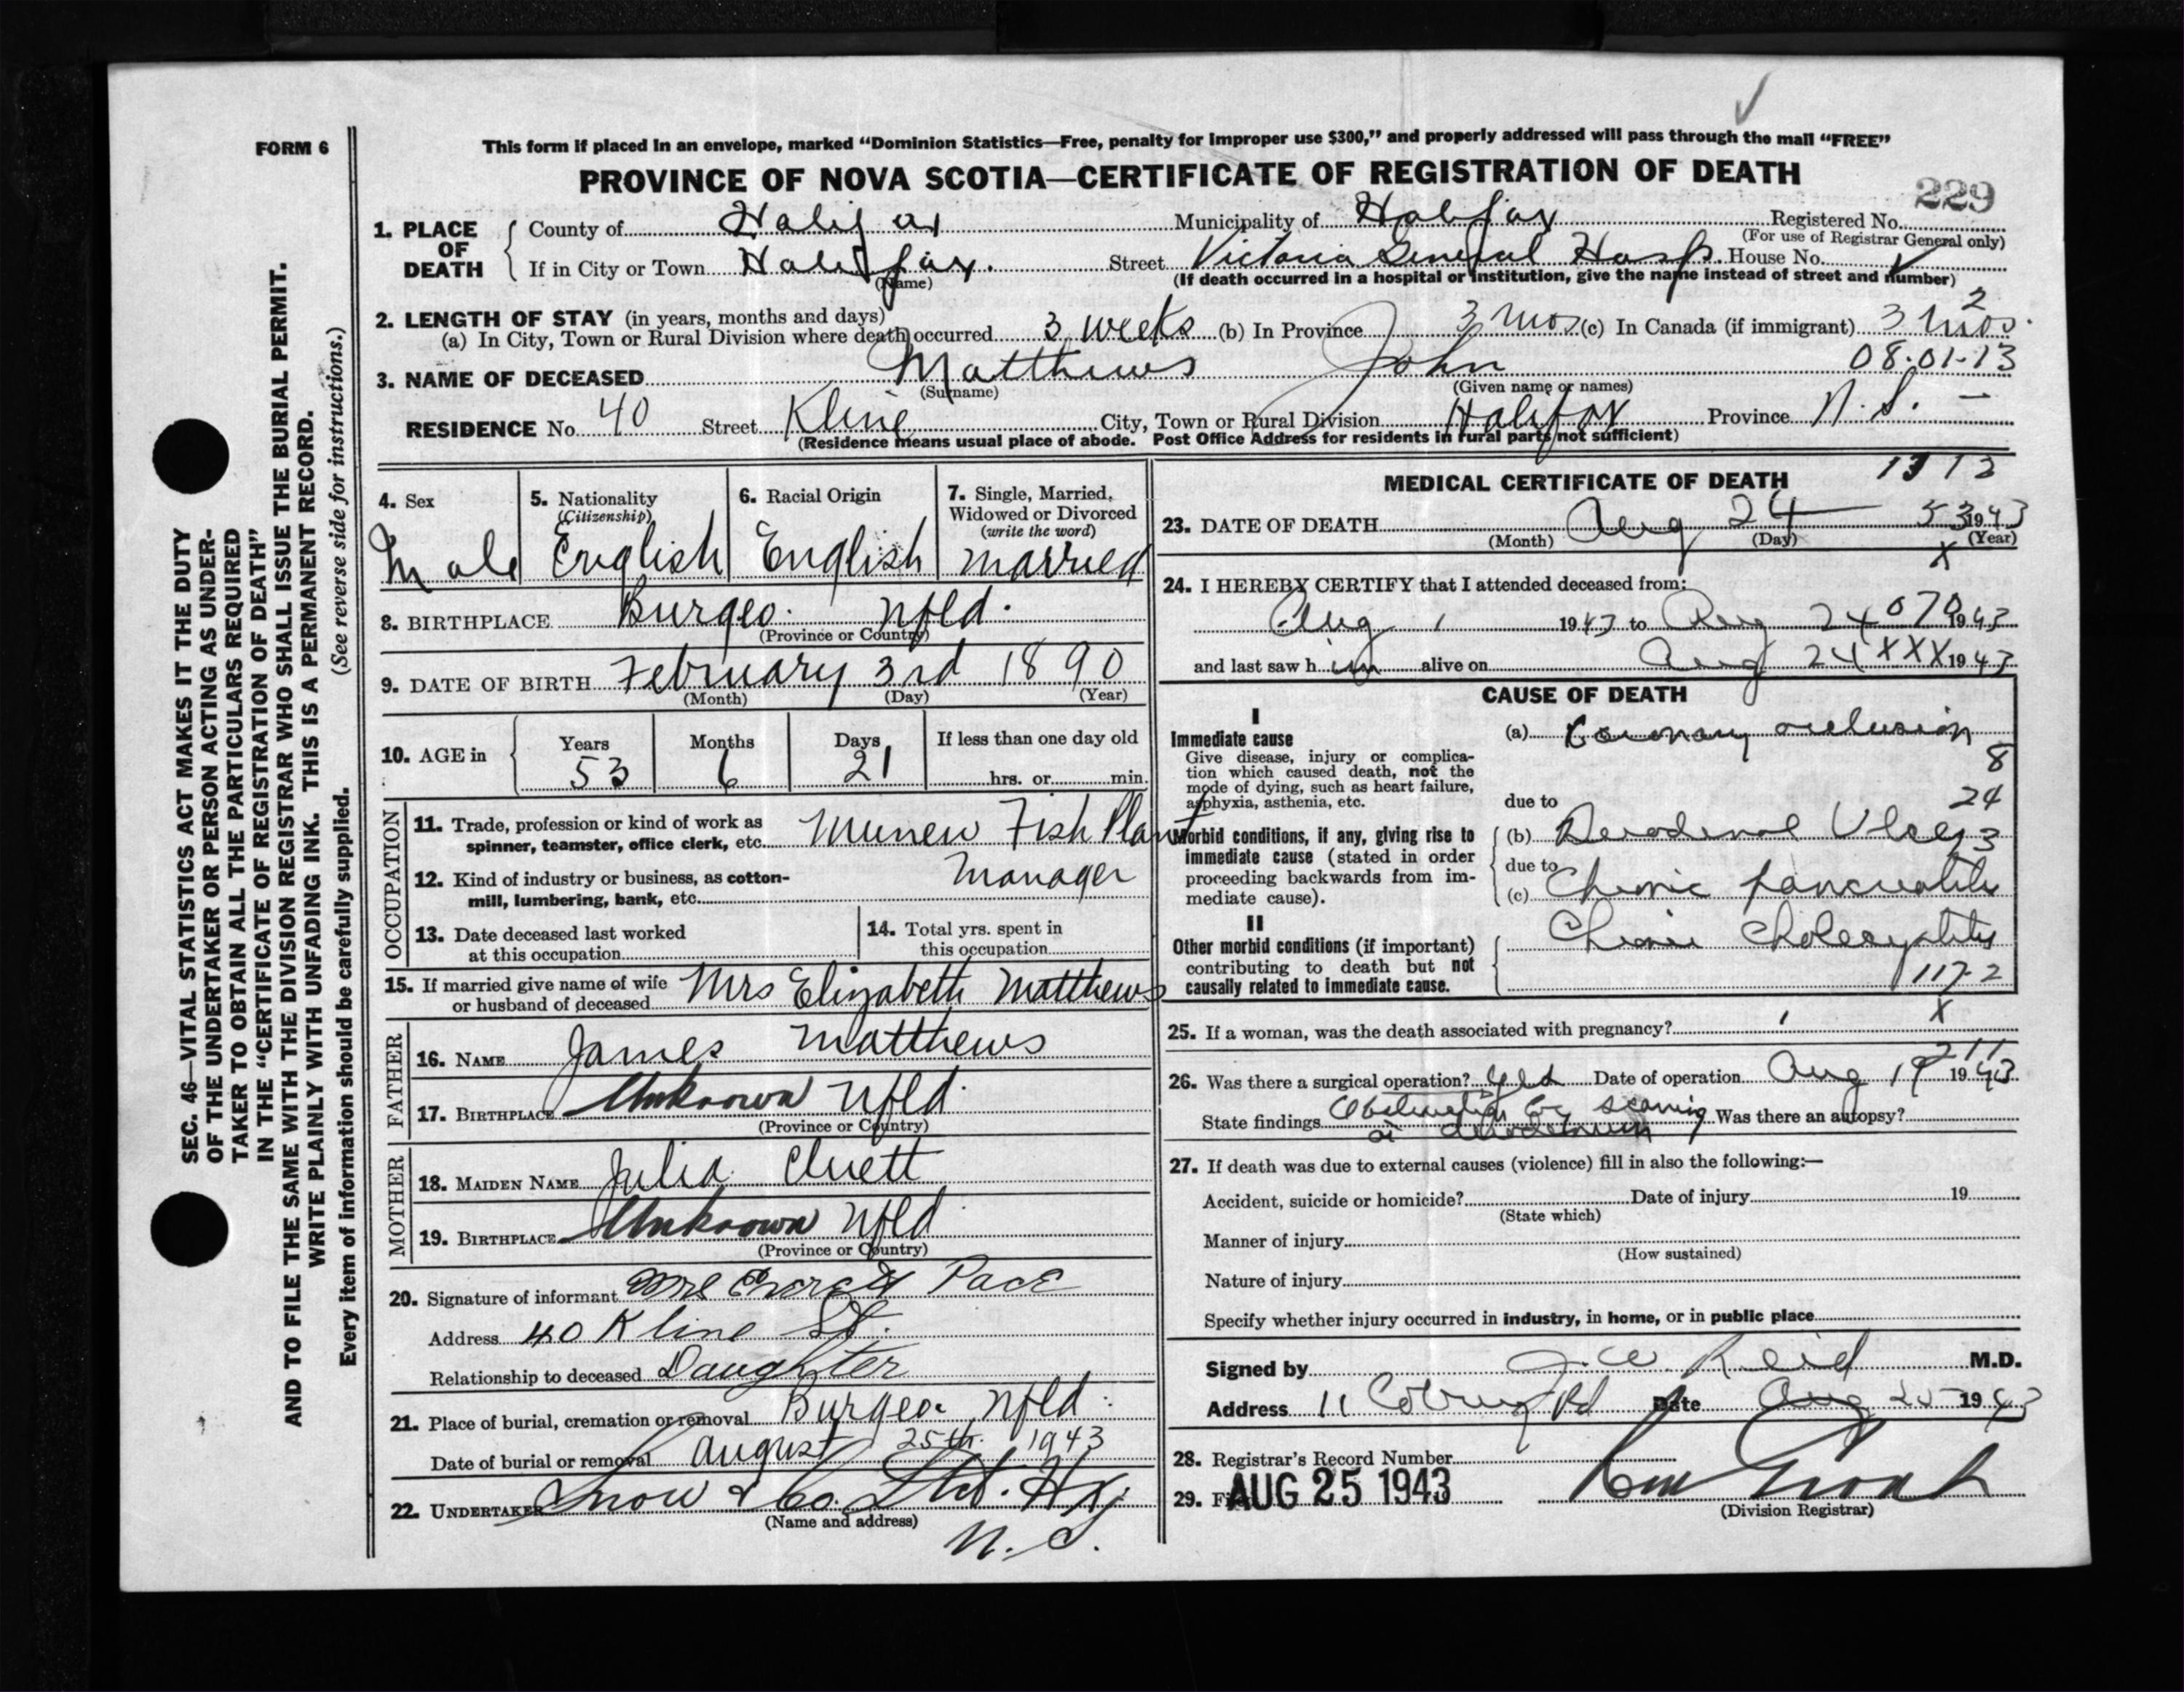 FORM 6
This form if placed in an envelope, marked “Dominion Statistics—Free, penalty for improper use $300,” and properly addressed will pass through the mail “FREE”
PROVINCE OF NOVA SCOTIA—CERTIFICATE OF REGISTRATION OF DEATH
229
1. PLACE OF DEATH
County of Halifax Municipality of Halifax Registered No.
(For use of Registrar General only)
If in City or Town Halifax. Street Victoria General Hosp. House No.
(Name) (If death occurred in a hospital or institution, give the name instead of street and number)
2. LENGTH OF STAY (in years, months and days) 2
(a) In City, Town or Rural Division where death occurred 3 weeks (b) In Province 3 mos (c) In Canada (if immigrant) 3 mos.
08-01-13
3. NAME OF DECEASED Matthews John
(Surname) (Given name or names)
RESIDENCE No. 40 Street Kline City, Town or Rural Division Halifax Province N.S. –
(Residence means usual place of abode. Post Office Address for residents in rural parts not sufficient)
4. Sex
Male
5. Nationality
(Citizenship)
English
6. Racial Origin
English
7. Single, Married, Widowed or Divorced
(write the word)
married
8. BIRTHPLACE Burgeo. Nfld.
(Province or Country)
9. DATE OF BIRTH February 3rd 1890
(Month) (Day) (Year)
10. AGE in Years Months Days If less than one day old
53 6 21 hrs. or min.
OCCUPATION
11. Trade, profession or kind of work as Fish Plant
spinner, teamster, office clerk, etc.
12. Kind of industry or business, as cotton- Manager
mill, lumbering, bank, etc.
13. Date deceased last worked
at this occupation
14. Total yrs. spent in
this occupation
15. If married give name of wife
or husband of deceased Mrs Elizabeth Matthews
FATHER
16. NAME James Matthews
17. BIRTHPLACE Unknown Nfld.
(Province or Country)
MOTHER
18. MAIDEN NAME Julia Cluett
19. BIRTHPLACE Unknown Nfld.
(Province or Country)
20. Signature of informant Mrs Pace
Address 40 Kline St.
Relationship to deceased Daughter
21. Place of burial, cremation or removal Burgeo. Nfld.
Date of burial or removal August 25th. 1943
22. UNDERTAKER Snow & Co. Ltd. Hfx.
(Name and address)
N.S.
MEDICAL CERTIFICATE OF DEATH
23. DATE OF DEATH Aug 24 53 1943
(Month) (Day) (Year)
X
24. I HEREBY CERTIFY that I attended deceased from:
Aug 1 1943 to Aug 24 070 1943
and last saw him alive on Aug 24 XXX 1943
CAUSE OF DEATH
I
Immediate cause
Give disease, injury or complica-
tion which caused death, not the
mode of dying, such as heart failure,
asphyxia, asthenia, etc.
(a) Coronary occlusion
8
due to 24
Morbid conditions, if any, giving rise to
immediate cause (stated in order
proceeding backwards from im-
mediate cause).
(b) Duodenal Ulcer 3
due to
(c) Chronic pancreatitis
II
Other morbid conditions (if important)
contributing to death but not
causally related to immediate cause.
Chronic Cholecystitis
117-2
25. If a woman, was the death associated with pregnancy?
X
211
26. Was there a surgical operation? yes Date of operation Aug 19 1943
State findings Obstruction by scarring Was there an autopsy?
27. If death was due to external causes (violence) fill in also the following:—
Accident, suicide or homicide? Date of injury 19
(State which)
Manner of injury
(How sustained)
Nature of injury
Specify whether injury occurred in industry, in home, or in public place
Signed by J. W. Reid M.D.
Address 11 Coburg Rd Date Aug 25 1943
28. Registrar's Record Number
29. AUG 25 1943
(Division Registrar)
SEC. 46—VITAL STATISTICS ACT MAKES IT THE DUTY
OF THE UNDERTAKER OR PERSON ACTING AS UNDER-
TAKER TO OBTAIN ALL THE PARTICULARS REQUIRED
IN THE “CERTIFICATE OF REGISTRATION OF DEATH”
AND TO FILE THE SAME WITH THE DIVISION REGISTRAR WHO SHALL ISSUE THE BURIAL PERMIT.
WRITE PLAINLY WITH UNFADING INK. THIS IS A PERMANENT RECORD.
Every item of information should be carefully supplied. (See reverse side for instructions.)